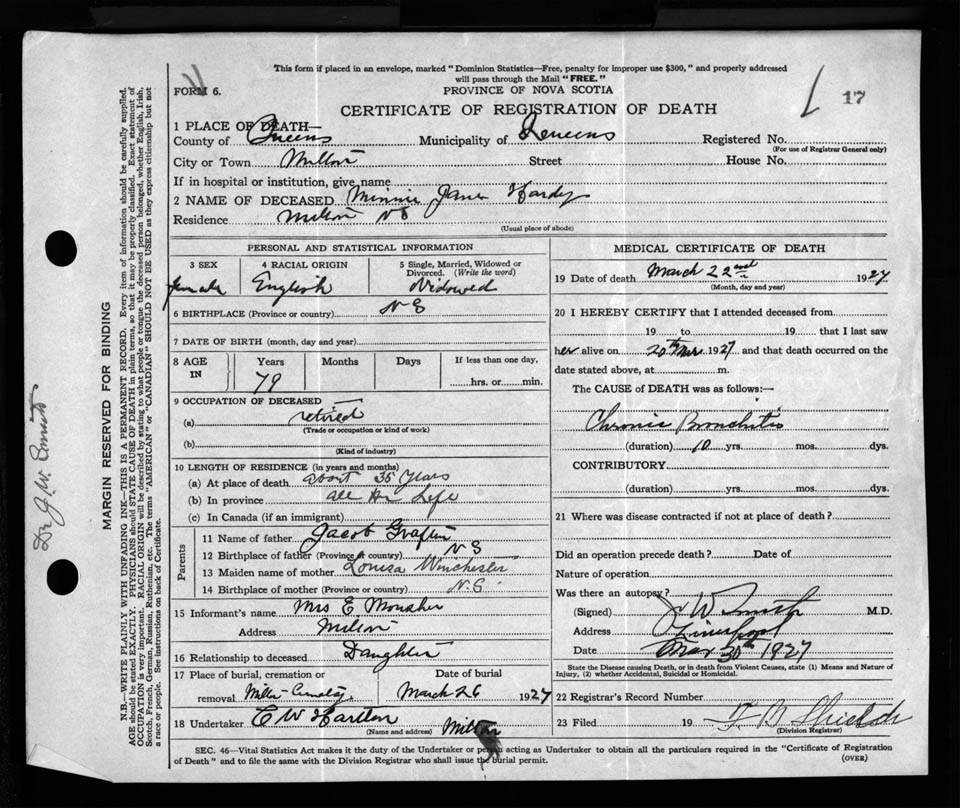 This form if placed in an envelope, marked "Dominion Statistics—Free, penalty for improper use $300," and properly addressed
will pass through the Mail "FREE."
FORM 6.
PROVINCE OF NOVA SCOTIA
17
CERTIFICATE OF REGISTRATION OF DEATH
1 PLACE OF DEATH—
County of Queens Municipality of Queens Registered No.
(For use of Registrar General only)
City or Town Milton Street House No.
If in hospital or institution, give name
2 NAME OF DECEASED Minnie Jane Hardy
Residence Milton NS
(Usual place of abode)
PERSONAL AND STATISTICAL INFORMATION
3 SEX
female
4 RACIAL ORIGIN
English
5 Single, Married, Widowed or
Divorced. (Write the word)
Widowed
6 BIRTHPLACE (Province or country) N S
7 DATE OF BIRTH (month, day and year)
8 AGE
IN
Years
79
Months
Days
If less than one day,
hrs. or min.
9 OCCUPATION OF DECEASED
(a) retired
(Trade or occupation or kind of work)
(b)
(Kind of industry)
10 LENGTH OF RESIDENCE (in years and months)
(a) At place of death about 35 Years
(b) In province all Her Life
(c) In Canada (if an immigrant)
Parents
11 Name of father Jacob
12 Birthplace of father (Province or country) N S
13 Maiden name of mother Louisa Winchester
14 Birthplace of mother (Province or country) N.S.
15 Informant's name Mrs E
Address Milton
16 Relationship to deceased Daughter
17 Place of burial, cremation or
removal Milton Cemetery
Date of burial
March 26 1927
18 Undertaker C W Hartlen
(Name and address) Milton
MEDICAL CERTIFICATE OF DEATH
19 Date of death March 22nd 1927
(Month, day and year)
20 I HEREBY CERTIFY that I attended deceased from
19 to 19 that I last saw
her alive on 20th Mar 1927 and that death occurred on the
date stated above, at m.
The CAUSE of DEATH was as follows:—
Chronic Bronchitis
(duration) 10 yrs. mos. dys.
CONTRIBUTORY
(duration) yrs. mos. dys.
21 Where was disease contracted if not at place of death?
Did an operation precede death? Date of
Nature of operation
Was there an autopsy?
(Signed) J W Smith M.D.
Address Liverpool
Date Mar 30th 1927
State the Disease causing Death, or in death from Violent Causes, state (1) Means and Nature of
Injury, (2) whether Accidental, Suicidal or Homicidal.
22 Registrar's Record Number
23 Filed 19
(Division Registrar)
SEC. 46—Vital Statistics Act makes it the duty of the Undertaker or person acting as Undertaker to obtain all the particulars required in the "Certificate of Registration
of Death" and to file the same with the Division Registrar who shall issue the burial permit.
(OVER)
MARGIN RESERVED FOR BINDING
N.B.—WRITE PLAINLY WITH UNFADING INK—THIS IS A PERMANENT RECORD. Every item of information should be carefully supplied.
AGE should be stated EXACTLY. PHYSICIANS should STATE CAUSE OF DEATH in plain terms, so that it may be properly classified. Exact statement of
OCCUPATION is very important. RACIAL ORIGIN will be described by stating to what people or tongue the deceased person belonged, whether English, Irish,
Scotch, French, German, Russian, Ruthenian, etc. The terms "AMERICAN" or "CANADIAN" SHOULD NOT BE USED as they express citizenship but not
a race or people. See instructions on back of Certificate.
Dr J. W.